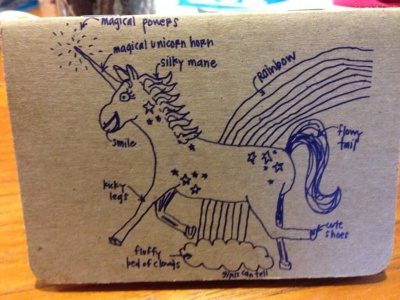 magical powers
magical unicorn horn
silky mane
Rainbow
smile
flowy
tail
kicky
legs
cute
shoes
fluffy
bed of clouds
girls can tell